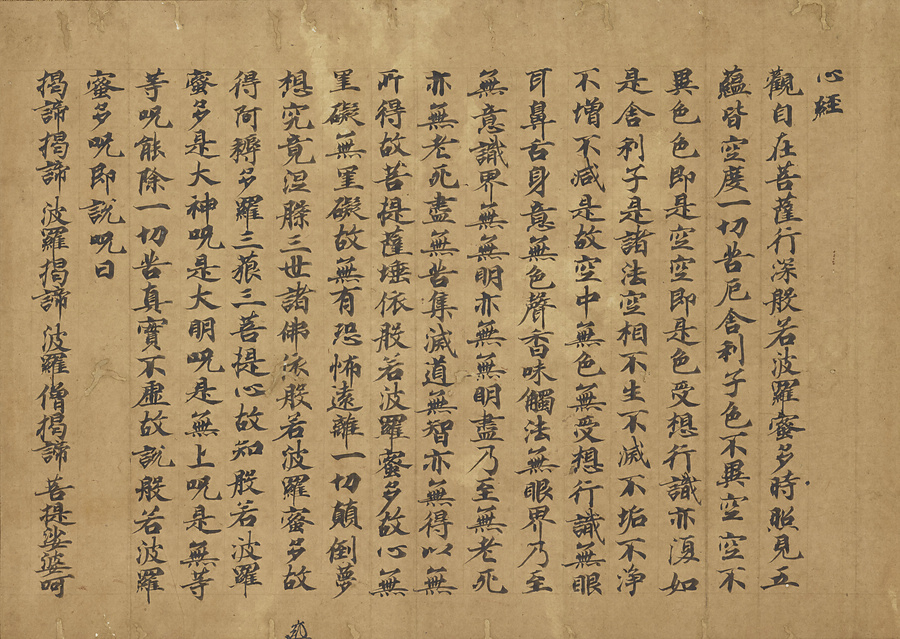 心經
觀自在菩薩行深般若波羅蜜多時照見五
蘊皆空度一切苦厄舍利子色不異空空不
異色色即是空空即是色受想行識亦復如
是舍利子是諸法空相不生不滅不垢不淨
不增不減是故空中無色無受想行識無眼
耳鼻舌身意無色聲香味觸法無眼界乃至
無意識界無無明亦無無明盡乃至無老死
亦無老死盡無苦集滅道無智亦無得以無
所得故菩提薩埵依般若波羅蜜多故心無
罣礙無罣礙故無有恐怖遠離一切顛倒夢
想究竟涅槃三世諸佛依般若波羅蜜多故
得阿耨多羅三藐三菩提心故知般若波羅
蜜多是大神呪是大明呪是無上呪是無等
等呪能除一切苦真實不虛故說般若波羅
蜜多呪即說呪曰
揭諦揭諦 波羅揭諦 波羅僧揭諦 菩提娑婆呵